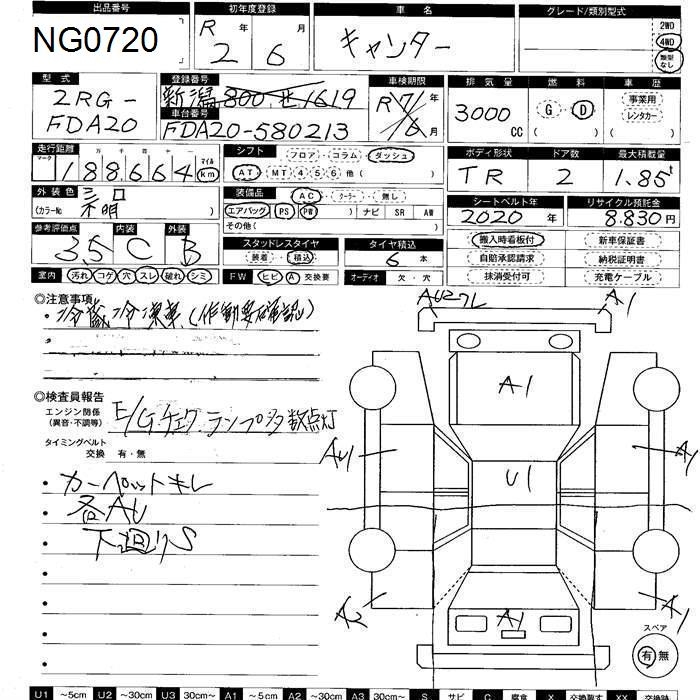 出品番号 初年度登録 車名 グレード/類別型式
NG0720 R 2 年 6 月 キャンター 2WD 4WD 類型なし
型式 登録番号 車検期限 排気量 燃料 車歴
2RG-FDA20 新潟 800 せ 1619 R 7 年 6 月 3000 CC G D 事業用 レンタカー
車台番号
FDA20-580213
走行距離 シフト フロア・コラム・ダッシュ ボディ形状 ドア数 最大積載量
マーク 十万 万 千 百 十 一
188,664 マイル km AT・MT 4 5 6 他( ) TR 2 1.85t
外装色 装備品 AC・クーラー・無し シートベルト年 リサイクル預託金
(カラーNo 不明) エアバッグ PS PW ナビ SR AW 2020 年 8.830 円
その他( )
参考評価点 内装 外装 スタッドレスタイヤ タイヤ積込 搬入時看板付 新車保証書
3.5 C B 装着・積込 6 本 自賠承認請求 納税証明書
室内 汚れ コゲ 穴 スレ 破れ シミ FW ヒビ・A・交換要 オーディオ 欠・穴 抹消受付可 充電ケーブル
◎注意事項
・冷蔵冷凍車(作動要確認)
◎検査員報告
エンジン関係
(異音・不調等) E/Gチェックランプ多数点灯
タイミングベルト
交換 有・無
・カーペットキレ
・各AU
・下廻りS
AU2フL A1
A1
AU U1 A1
A2 A1 A2
スペア
有 無
U1 ～5cm U2 ～30cm U3 30cm～ A1 ～5cm A2 ～30cm A3 30cm～ S サビ C 腐食 X 交換要す XX 交換済